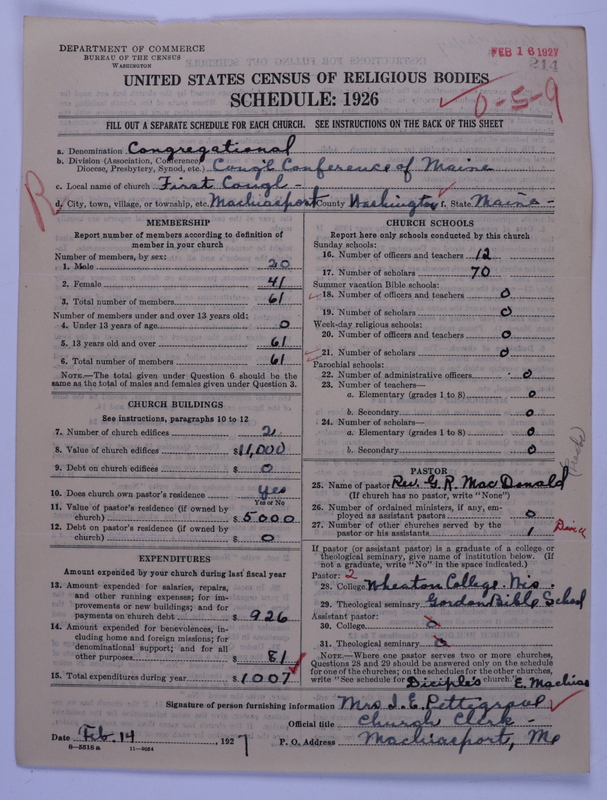 DEPARTMENT OF COMMERCE
BUREAU OF THE CENSUS
WASHINGTON
FEB 16 1927
214
UNITED STATES CENSUS OF RELIGIOUS BODIES
SCHEDULE: 1926
0-5-9
FILL OUT A SEPARATE SCHEDULE FOR EACH CHURCH. SEE INSTRUCTIONS ON THE BACK OF THIS SHEET
R
a. Denomination Congregational
b. Division (Association, Conference, Diocese, Presbytery, Synod, etc.) Cong'l Conference of Maine
c. Local name of church First Cong'l -
d. City, town, village, or township, etc. Machiasport e. County Washington f. State Maine -
MEMBERSHIP
Report number of members according to definition of
member in your church
Number of members, by sex:
1. Male 20
2. Female 41
3. Total number of members 61
Number of members under and over 13 years old:
4. Under 13 years of age 0
5. 13 years old and over 61
6. Total number of members 61
NOTE.—The total given under Question 6 should be
same as the total of males and females given under Question 3.
CHURCH BUILDINGS
See instructions, paragraphs 10 to 12
7. Number of church edifices 2
8. Value of church edifices $11,000
9. Debt on church edifices $ 0
10. Does church own pastor's residence yes
Yes or No
11. Value of pastor's residence (if owned by
church) $ 5000
12. Debt on pastor's residence (if owned by
church) $ 0
EXPENDITURES
Amount expended by your church during last fiscal year
13. Amount expended for salaries, repairs,
and other running expenses; for im-
provements or new buildings; and for
payments on church debt $ 926
14. Amount expended for benevolences, in-
cluding home and foreign missions; for
denominational support; and for all
other purposes $ 81
15. Total expenditures during year $ 1007
CHURCH SCHOOLS
Report here only schools conducted by this church
Sunday schools:
16. Number of officers and teachers 12
17. Number of scholars 70
Summer vacation Bible schools:
18. Number of officers and teachers 0
19. Number of scholars 0
Week-day religious schools:
20. Number of officers and teachers 0
21. Number of scholars 0
Parochial schools:
22. Number of administrative officers 0
23. Number of teachers—
a. Elementary (grades 1 to 8) 0
b. Secondary 0
24. Number of scholars—
a. Elementary (grades 1 to 8) 0
b. Secondary 0
PASTOR
25. Name of pastor Rev. G. R. MacDonald
(If church has no pastor, write "None")
26. Number of ordained ministers, if any, em-
ployed as assistant pastors 0
27. Number of other churches served by the
pastor or his assistants 1
If pastor (or assistant pastor) is a graduate of a college or
theological seminary, give name of institution below. (If
not a graduate, write "No" in the space indicated.)
Pastor: 2
28. College Wheaton College. Wis.
29. Theological seminary Gordon Bible School
Assistant pastor:
30. College 0
31. Theological seminary 0
NOTE.—Where one pastor serves two or more churches,
Questions 28 and 29 should be answered only on the schedule
for one of the churches; on the schedules for the other churches,
write "See schedule for Diciple's church." E. Machias
Signature of person furnishing information Mrs. I. E. Pettegrow
Official title Church Clerk -
Date Feb. 14, 1927 P. O. Address Machiasport, Me
8—5518 a 11—9064